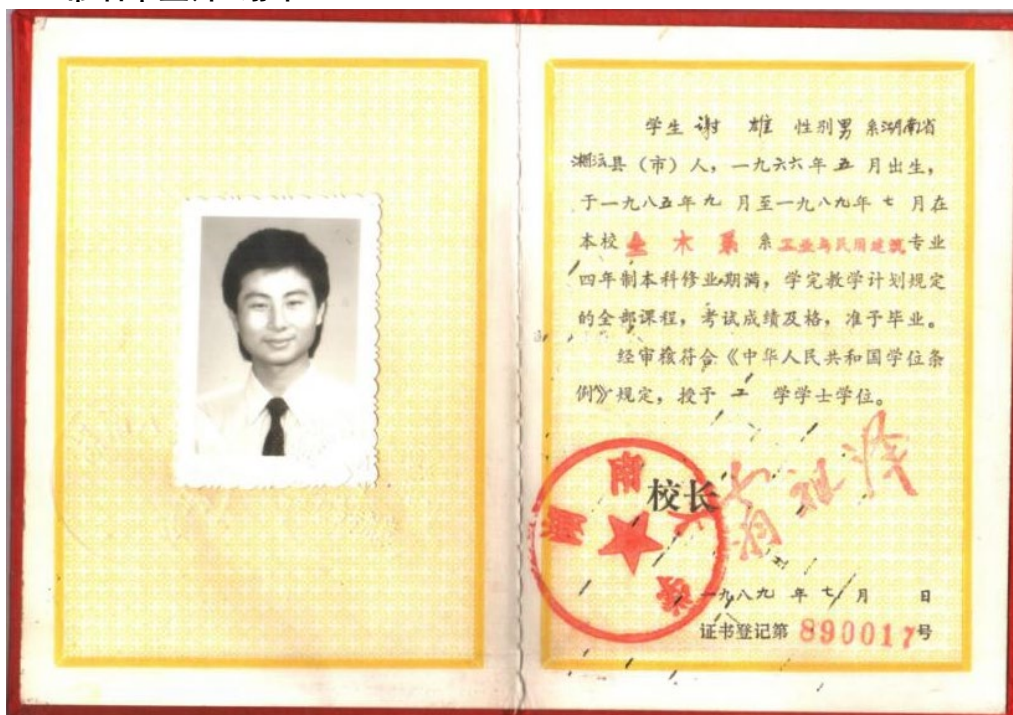 学生 谢 雄 性别 男 系湖南省
县（市）人，一九六六年 五 月出生，
于一九八五年 九 月至一九八九年 七 月在
本校 土 木 系 系 工业与民用建筑 专业
四年制本科修业期满，学完教学计划规定
的全部课程，考试成绩及格，准予毕业。
经审核符合《中华人民共和国学位条
例》规定，授予 工 学学士学位。
校长
湖南大学
一九八九 年 七 月 日
证书登记第 890017 号